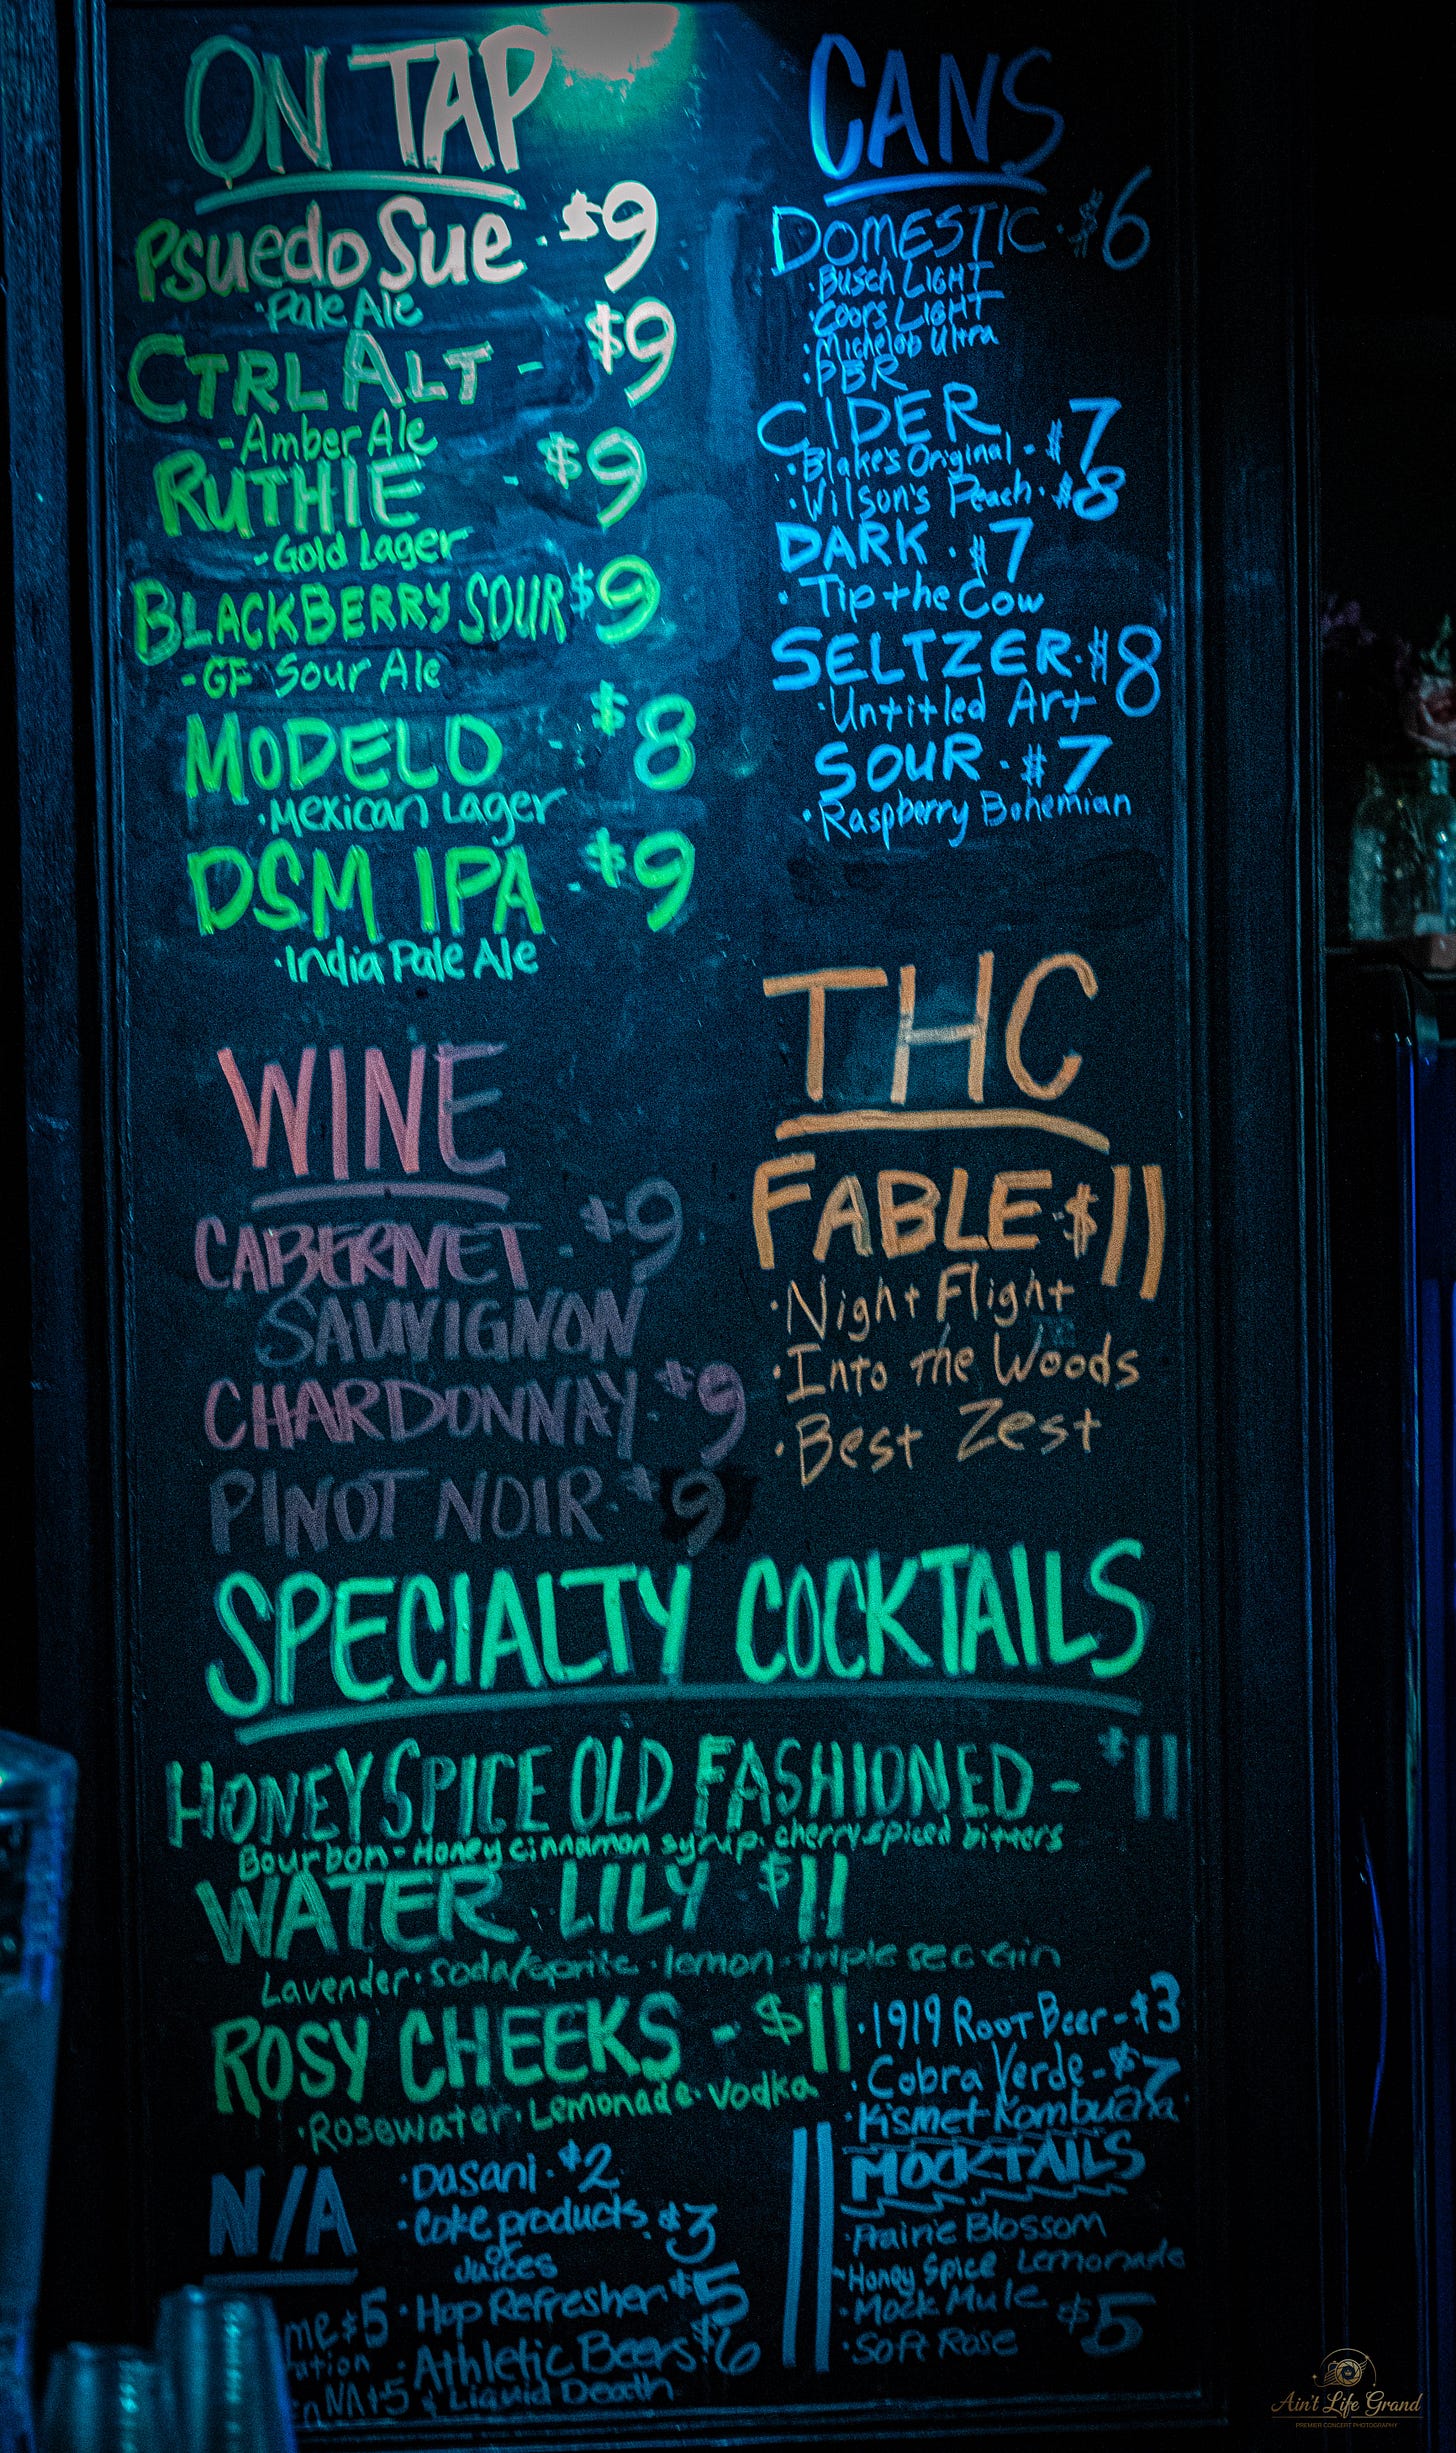 ON TAP
Psuedo Sue . $9
·Pale Ale
CTRL ALT - $9
-Amber Ale
RUTHIE - $9
-Gold Lager
BLACKBERRY SOUR $9
-GF Sour Ale
MODELO - $8
·Mexican Lager
DSM IPA · $9
·India Pale Ale
WINE
CABERNET - $9
SAUVIGNON
CHARDONNAY · $9
PINOT NOIR · $9
CANS
DOMESTIC · $6
·Busch LIGHT
·Coors LIGHT
·Michelob Ultra
·PBR
CIDER
·Blake's Original - $7
·Wilson's Peach · $8
DARK · $7
·Tip the Cow
SELTZER · $8
·Untitled Art
SOUR · $7
·Raspberry Bohemian
THC
FABLE · $11
·Night Flight
·Into the Woods
·Best Zest
SPECIALTY COCKTAILS
HONEY SPICE OLD FASHIONED - $11
Bourbon - Honey cinnamon syrup · cherry spiced bitters
WATER LILY $11
Lavender · soda/sprite · lemon - triple sec · Gin
ROSY CHEEKS - $11
·Rosewater · Lemonade · Vodka
N/A
·Dasani · $2
·Coke products $3
or
Juices
·Hop Refresher $5
·Athletic Beers $6
& Liquid Death
me $5
ation
NA $5
·1919 Root Beer - $3
·Cobra Verde - $7
·Kismet Kombucha
MOCKTAILS
·Prairie Blossom
·Honey Spice Lemonade
·Mock Mule $5
·Soft Rose
Ain't Life Grand
PREMIER CONCERT PHOTOGRAPHY